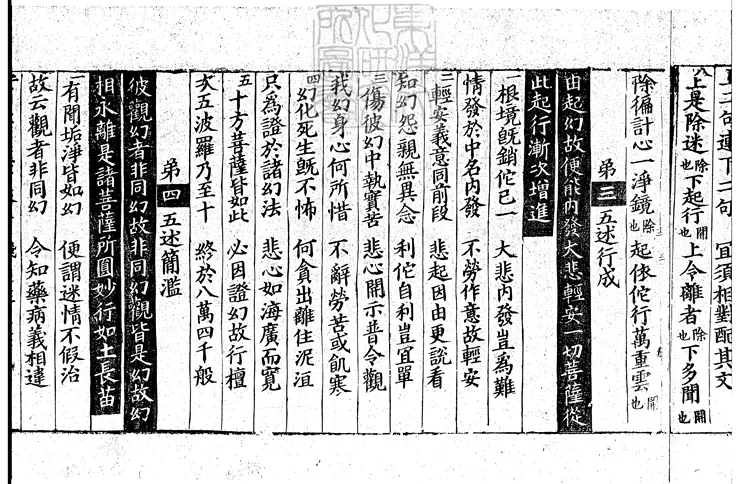 上二句連下二句　宜須相對配其文
八上是除迷除也下起行開也上令離者除也下多聞開也
除徧計心一淨鏡除也　起依佗行萬重雲開也
第三　五述行成
由起幻故便能內發大悲輕安一切菩薩從
此起行漸次增進
一根境旣銷佗已一　大悲內發豈為難
情發於中名內發　不勞作意故輕安
二輕安義意同前段　悲起因由更說看
知幻怨親無異念　利佗自利豈宜單
三傷彼幻中執實苦　悲心開示普令觀
我幻身心何所惜　不辭勞苦或飢寒
四幻化死生旣不怖　何貪出離住泥洹
只為證於諸幻法　悲心如海廣而寬
五十方菩薩皆如此　必因證幻故行檀
次五波羅乃至十　終於八萬四千般
第四　五述簡濫
彼觀幻者非同幻故非同幻觀皆是幻故幻
相永離是諸菩薩所圓妙行如土長苗
一有聞垢淨皆如幻　便謂迷情不假治
故云觀者非同幻　令知藥病義相違